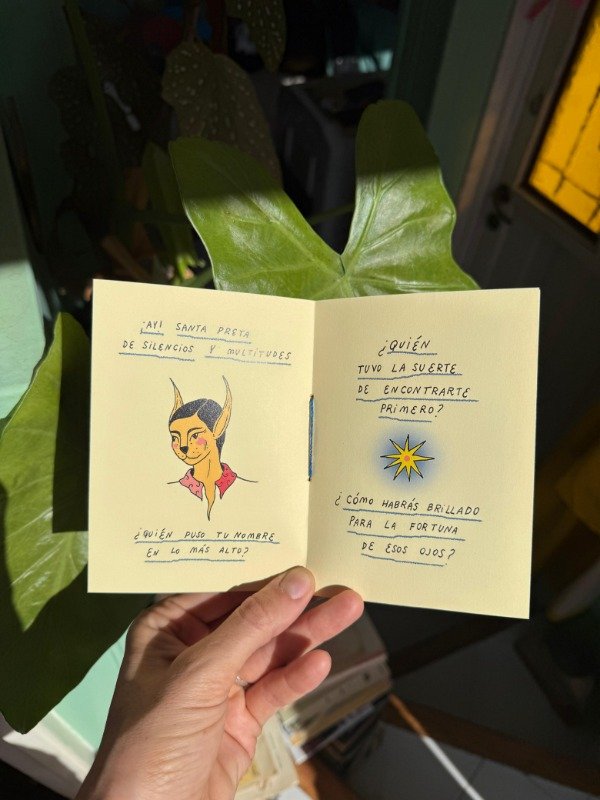 ¡AY! SANTA PRETA
DE SILENCIOS Y MULTITUDES
¿QUIÉN PUSO TU NOMBRE
EN LO MÁS ALTO?
¿QUIÉN
TUVO LA SUERTE
DE ENCONTRARTE
PRIMERO?
¿CÓMO HABRÁS BRILLADO
PARA LA FORTUNA
DE ESOS OJOS?